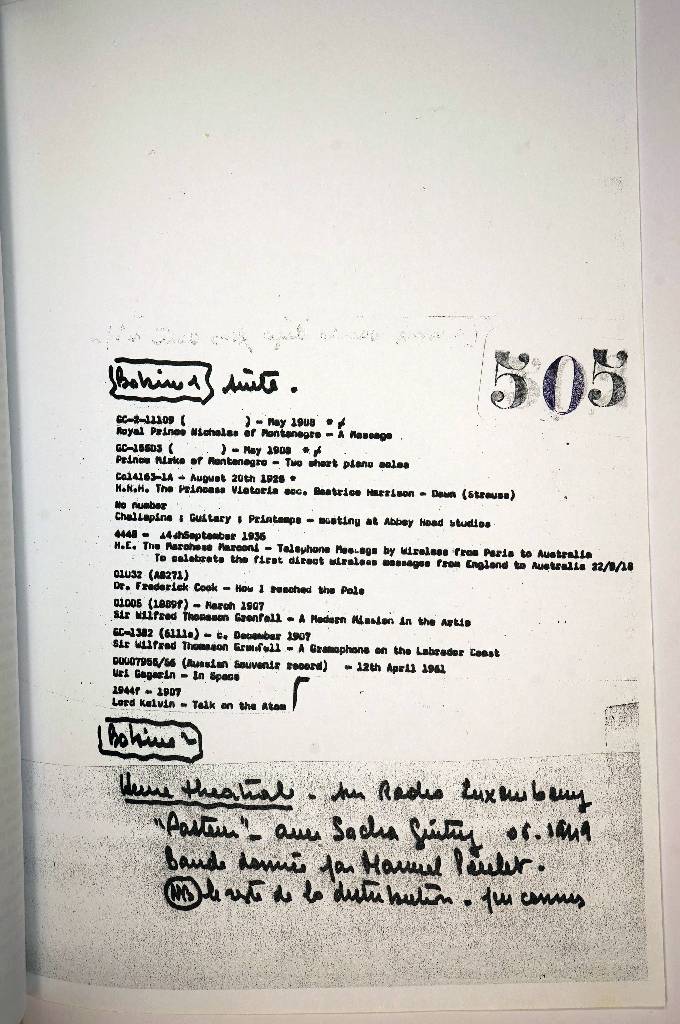 505
Bobine 1 suite.
GC-2-11109 ( ) - May 1908 *
Royal Prince Nicholas of Montenegro - A Message
GC-15503 ( ) - May 1908 *
Prince Mirko of Montenegro - Two short piano solos
Cc14163-1A - August 20th 1928 *
H.H.H. The Princess Victoria acc. Beatrice Harrison - Dawn (Strauss)
No number
Chaliapine ; Guitary ; Printemps - meeting at Abbey Road studios
4448 - 14thSeptember 1936
H.E. The Marchese Marconi - Telephone Message by Wireless from Paris to Australia
To celebrate the first direct wireless messages from England to Australia 22/9/18
01032 (A8271)
Dr. Frederick Cook - How I reached the Pole
01005 (1889f) - March 1907
Sir Wilfred Thomason Grenfell - A Modern Mission in the Artic
GC-1382 (6111e) - c. December 1907
Sir Wilfred Thomason Grenfell - A Gramophone on the Labrador Coast
00007955/56 (Russian Souvenir record) - 12th April 1961
Uri Gagarin - In Space
1944f - 1907
Lord Kelvin - Talk on the Atom
Bobine 2
théatrale - sur Radio Luxembourg
"Pasteur" - avec Sacha Guitry 1949
Bande donnée par Manuel
le reste de la distribution.